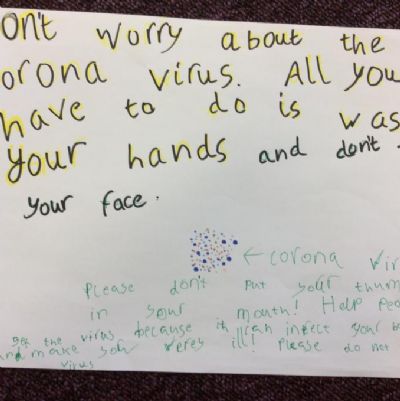 on't worry about the
orona virus. All you
have to do is was
your hands and don't
your face.
← corona vir
Please don't put your thum
in your mouth! Help Peo
the virus because it can infect your b
and make you verey ill! Please do not
virus